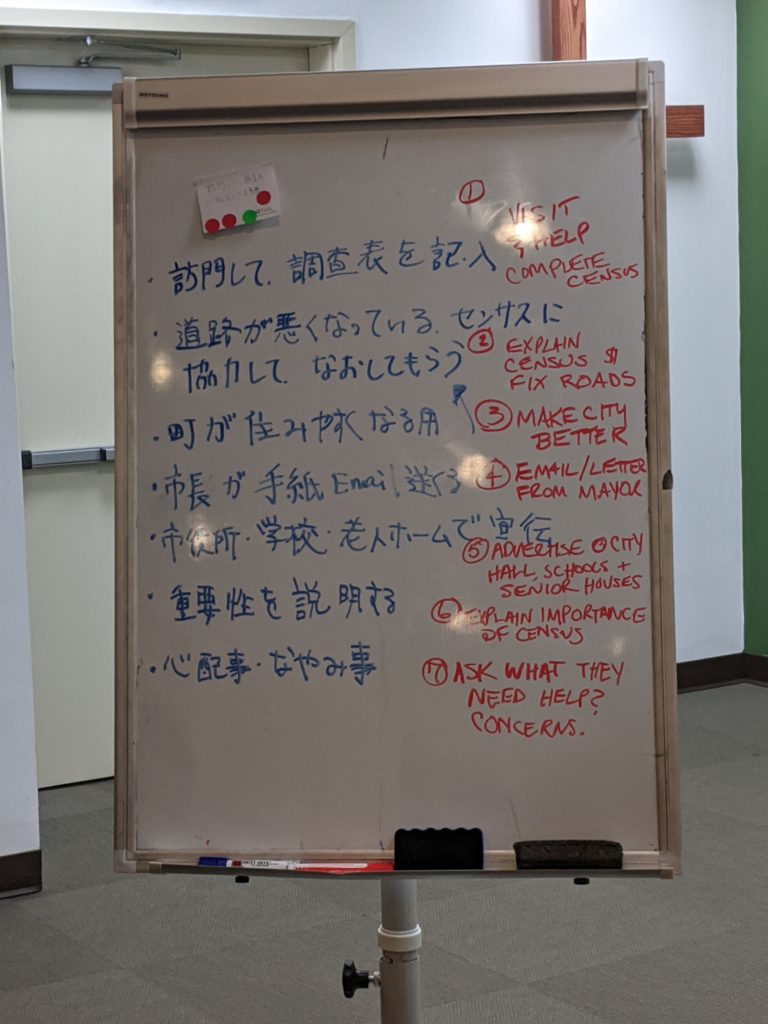 ・訪門して、調査表を記入
・道路が悪くなっている、センサスに
協力して、なおしてもらう
・町が住みやすくなる用
・市長が手紙Email送る
・市役所・学校・老人ホームで宣伝
・重要性を説明する
・心配事・なやみ事
①
VISIT
& HELP
COMPLETE
CENSUS
② EXPLAIN
CENSUS $
FIX ROADS
③ MAKE CITY
BETTER
④ EMAIL/LETTER
FROM MAYOR
⑤ ADVERTISE @ CITY
HALL, SCHOOLS +
SENIOR HOUSES
⑥ EXPLAIN IMPORTANCE
OF CENSUS
⑦ ASK WHAT THEY
NEED HELP?
CONCERNS.